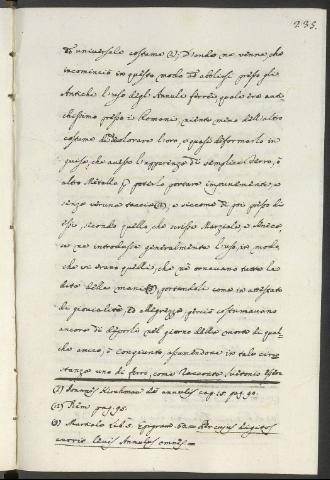 235.
di universale costume (1); D'onde ne venne, che
incominciò in questo modo ad abolirsi presso gli
Antichi l'uso degli Annuli ferrei, quale era anti-
chissimo presso i Romani, niente meno dell'altro
costume di colorare l'oro, e quasi difformarlo in
guisa, che avesse l'apparenza di semplice ferro, ò
altro Metallo p poterlo portare impunemente, e
senza veruna taccia (2), e siccome di poi presso di
essi, secondo quello, che scrisse Marziale, e Seneca,
se ne introdusse generalmente l'uso, in modo,
che vi erano quelli, che ne ornavano tutte le
dita della mano (3) portandoli come in attestato
di giocalità, ed allegrezza, perciò costumavano
ancora di deporli nel giorno della morte di qual-
che amico, ò congiunto, assumendone in tale circo-
stanza uno di ferro, come racconta Suetonio
(1) Joannis Kirchman de annulis cap. 15. pag. 90.
(2) Idem pag. 95.
(3) Martiale Lib. 5. Epigram.
omnes